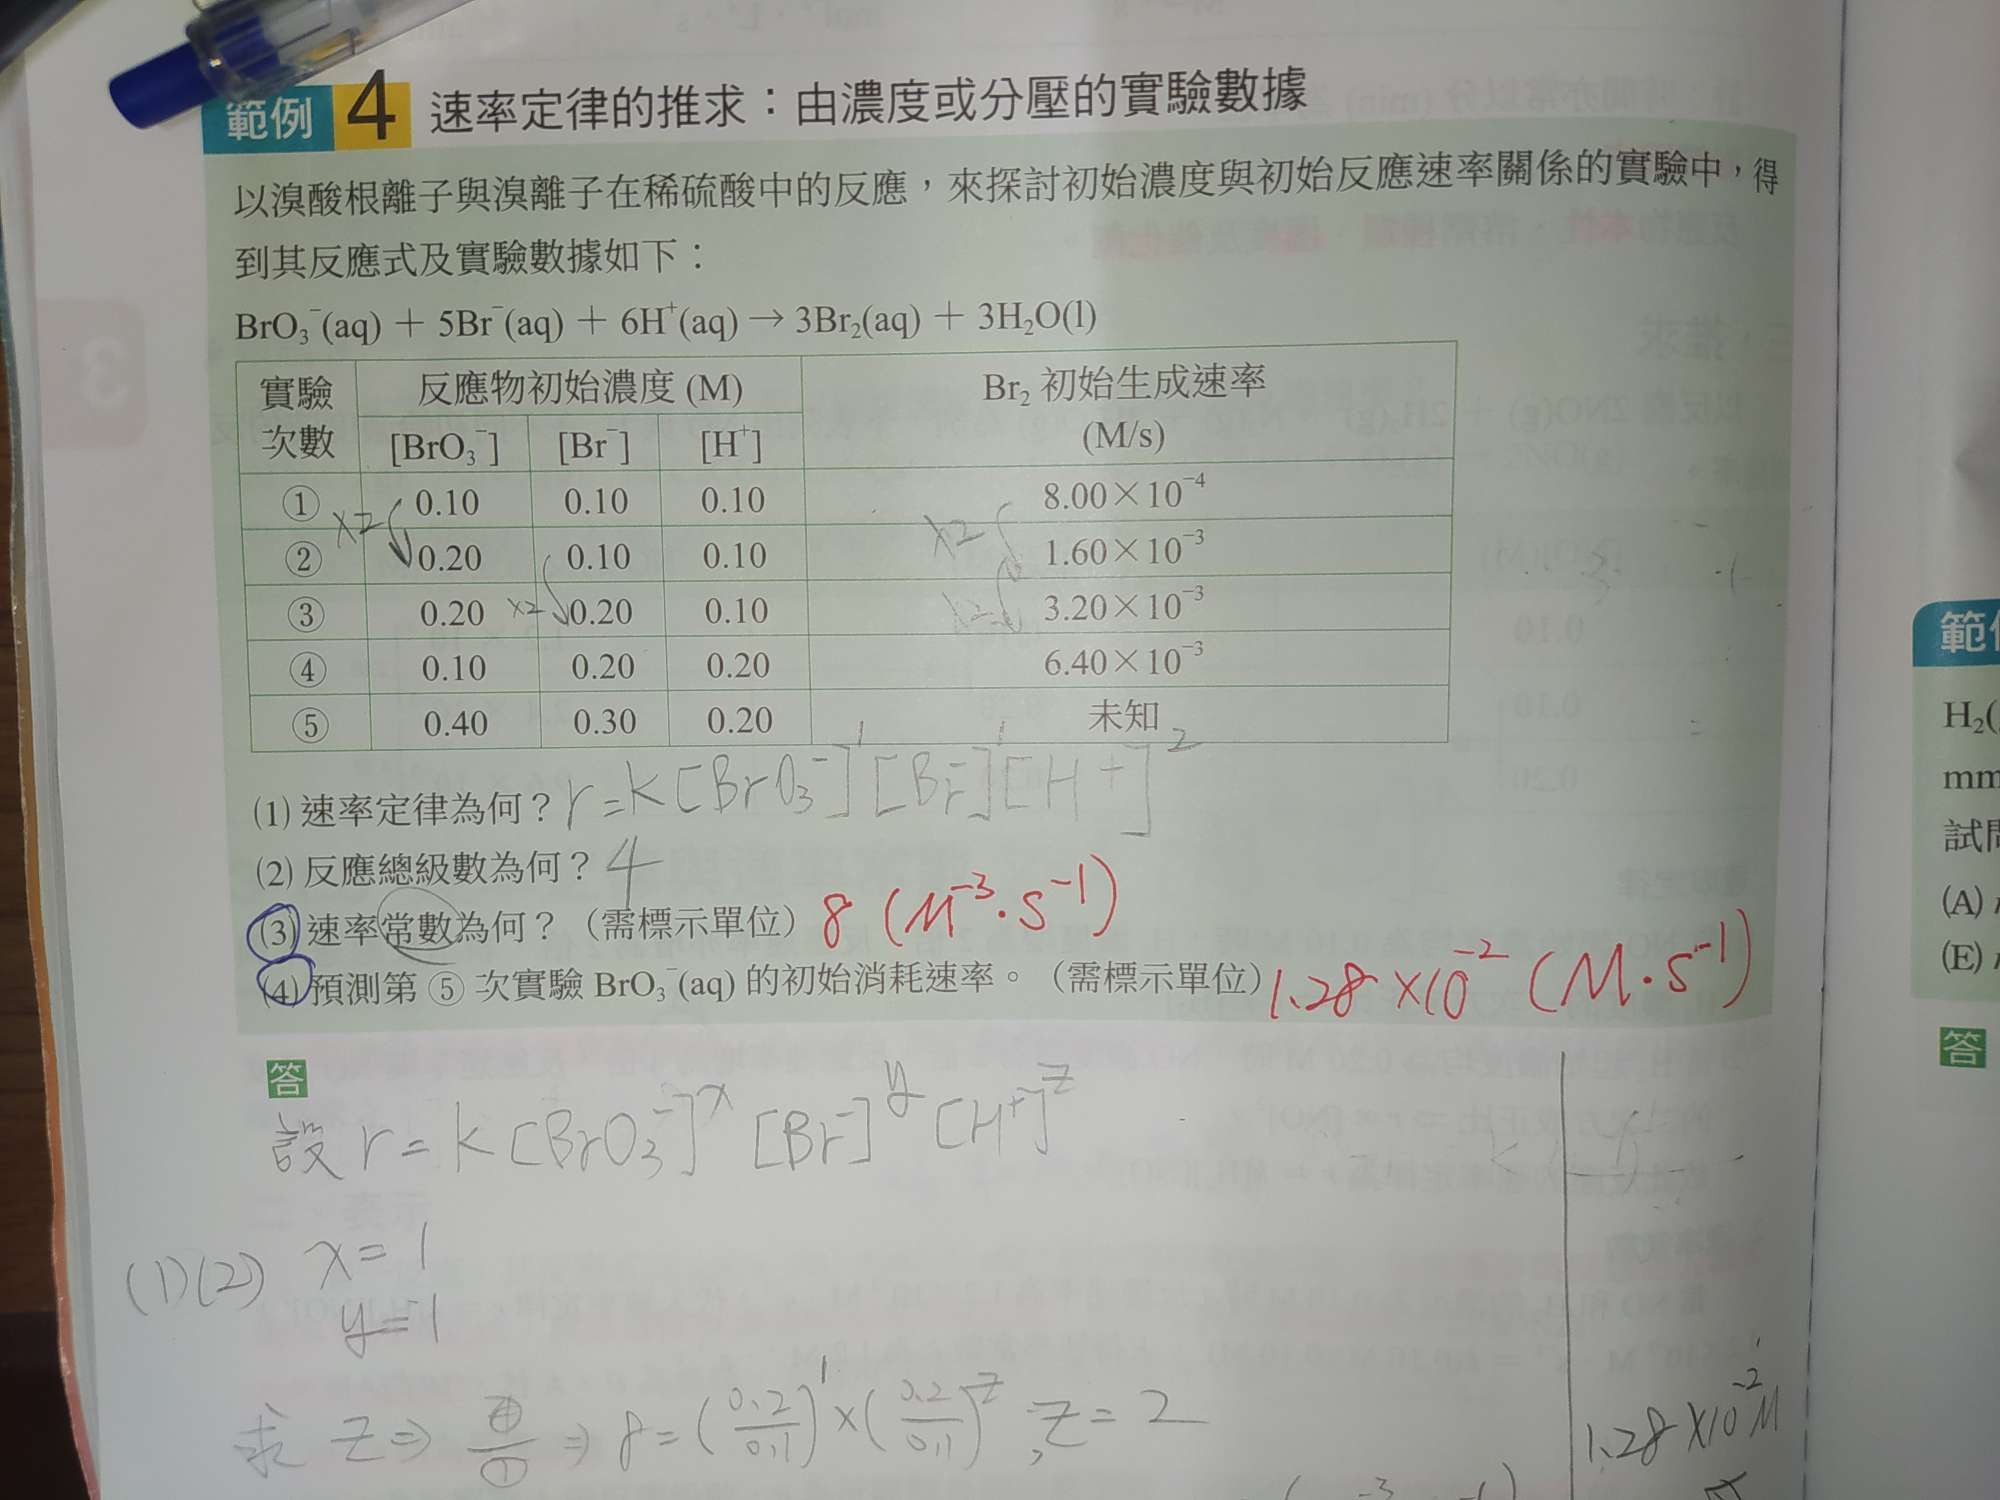 範例 4 速率定律的推求：由濃度或分壓的實驗數據
以溴酸根離子與溴離子在稀硫酸中的反應，來探討初始濃度與初始反應速率關係的實驗中，得
到其反應式及實驗數據如下：
BrO₃⁻(aq) + 5Br⁻(aq) + 6H⁺(aq) → 3Br₂(aq) + 3H₂O(l)
實驗次數 反應物初始濃度 (M) Br₂ 初始生成速率 (M/s)
[BrO₃⁻] [Br⁻] [H⁺]
① 0.10 0.10 0.10 8.00×10⁻⁴
×2 ×2
② 0.20 0.10 0.10 1.60×10⁻³
③ 0.20 ×2 0.20 0.10 ×2 3.20×10⁻³
④ 0.10 0.20 0.20 6.40×10⁻³
⑤ 0.40 0.30 0.20 未知
(1) 速率定律為何？ r=k[BrO₃⁻]¹[Br⁻]¹[H⁺]²
(2) 反應總級數為何？ 4
(3) 速率常數為何？（需標示單位） 8 (M⁻³·s⁻¹)
(4) 預測第 ⑤ 次實驗 BrO₃⁻(aq) 的初始消耗速率。（需標示單位） 1.28×10⁻² (M·s⁻¹)
答
設 r=k[BrO₃⁻]ˣ[Br⁻]ʸ[H⁺]ᶻ
(1)(2) x=1
y=1
求 z⇒ ④/① ⇒ 8=(0.2/0.1)¹×(0.2/0.1)ᶻ, z=2
1.28×10⁻²M
範
H₂(
mm
試
(A)
(E)
答